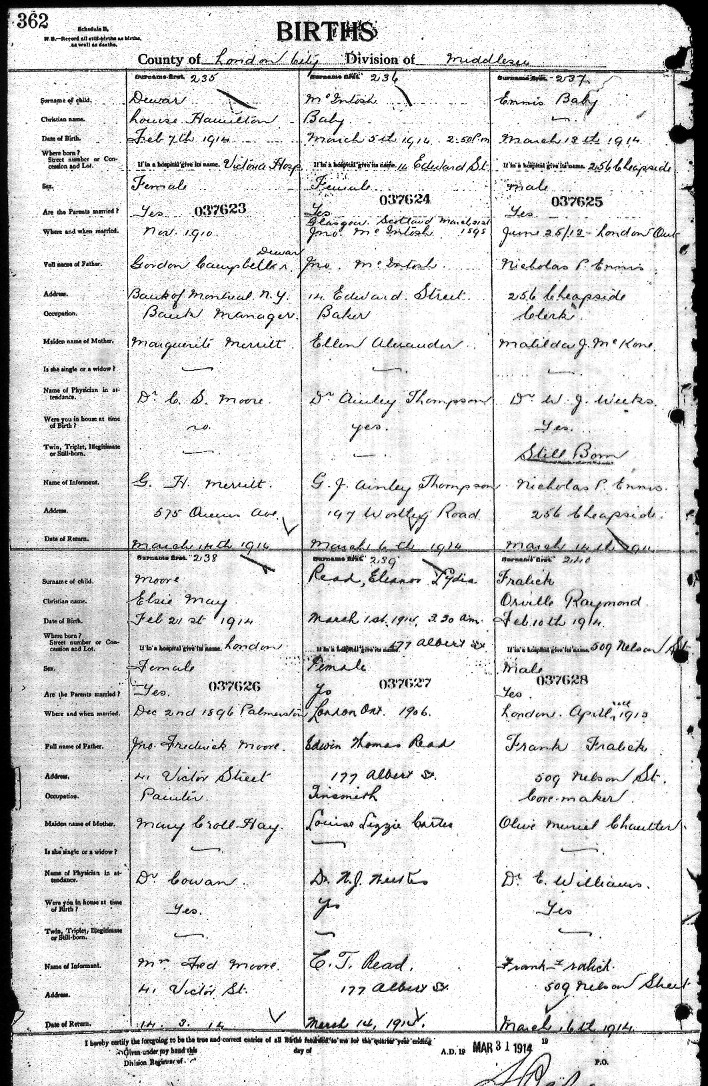 362
Schedule B.
N.B.—Record all still-births as births, as well as deaths.
BIRTHS
County of London City Division of Middlesex
Surname first. 235 Surname first. 236 Surname first. 237
Surname of child. Dewar McIntosh Ennis Baby
Christian name. Louise Hamilton Baby —
Date of Birth. Feb 7th 1914 March 5th 1914 2:50 Pm March 12th 1914
Where born? Street number or Concession and Lot. If in a hospital give its name. Victoria Hosp If in a hospital give its name. 14 Edward St. If in a hospital give its name. 256 Cheapside
Sex. Female Female male
037623 037624 037625
Are the Parents married? Yes Yes Yes
Where and when married. Nov. 1910. Glasgow Scotland March 31st 1895 Jno. McIntosh June 25/12 London Ont
Full name of Father. Gordon Campbell Dewar Jno. McIntosh Nicholas P. Ennis
Address. Bank of Montreal N.Y. 14 Edward Street 256 Cheapside
Occupation. Bank Manager. Baker Clerk
Maiden name of Mother. Marguerite Merritt Ellen Alexander Matilda J. McKone
Is she single or a widow? — — —
Name of Physician in attendance. Dr C. S. Moore Dr Ainley Thompson Dr W. J. Weeks.
Were you in house at time of Birth? no. yes. Yes.
Twin, Triplet, Illegitimate or Still-born. — — Still Born
Name of Informant. G. H. Merritt. G. J. Ainley Thompson Nicholas P. Ennis.
Address. 575 Queens Ave. 197 Wortley Road 256 Cheapside
Date of Return. March 14th 1914 March 6th 1914 March 14th 1914
Surname first. 238 Surname first. 239 Surname first. 240
Surname of child. Moore Read, Eleanor Lydia Fralick
Christian name. Elsie May Orville Raymond
Date of Birth. Feb 21st 1914 March 1st, 1914, 3.30 am. Feb 10th 1914
Where born? Street number or Concession and Lot. If in a hospital give its name. London If in a hospital give its name. 177 Albert St If in a hospital give its name. 509 Nelson St
Sex. Female Female Male
037626 037627 037628
Are the Parents married? Yes. Yes Yes.
Where and when married. Dec 2nd 1896 Palmerston London Ont. 1906. London. April 1913
Full name of Father. Jno. Fredrick Moore. Edwin Thomas Read Frank Fralick
Address. 41 Victor Street 177 Albert St. 509 Nelson St.
Occupation. Painter. Tinsmith Core-maker
Maiden name of Mother. Mary Croll Hay. Louise Lizzie Olive Muriel
Is she single or a widow? — — —
Name of Physician in attendance. Dr Cowan. Dr. Dr. E. Williams.
Were you in house at time of Birth? Yes. Yes Yes
Twin, Triplet, Illegitimate or Still-born. — — —
Name of Informant. Mr Fred Moore. E. T. Read. Frank Fralick
Address. 41 Victor St. 177 Albert St 509 Nelson Street
Date of Return. 14. 3. 14 March 14, 1914. March 16th 1914
I hereby certify the foregoing to be the true and correct entries of all Births returned to me for the quarter year ending 19
Given under my hand this day of A.D. 19 MAR 31 1914
Division Registrar of P.O.